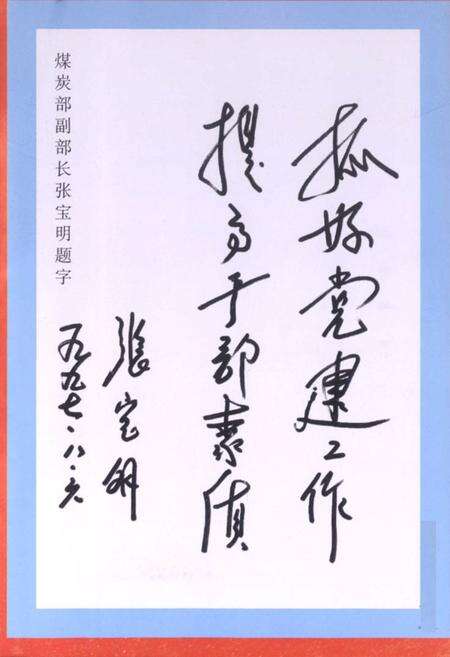 抓好党建工作
提高干部素质
張宝明
一九九七·八·六
煤炭部副部长张宝明题字